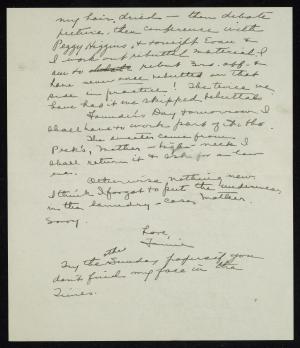 my hair dried — then debate
picture, then conference with
Peggy Higgins, & tonight Evan &
I work out rebuttal material. I
am to rebut 3rd. aff. &
have never once rebutted on that
side in practice! The twice we
have had it we skipped rebuttals
Founder's Day tomorrow. I
shall have to work part of it, tho.
The sweater came from
Peck's, Mother — high-neck. I
shall return it & ask for a low
one.
Otherwise nothing new.
I think I forgot to put the underwear
in the laundry-case, Mother.
Sorry.
Love,
Try the Sunday papers if you
don't find my face in the
Times.